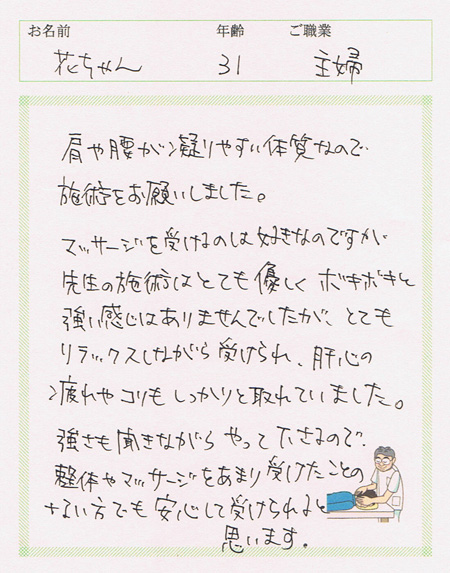 お名前 年齢 ご職業
花ちゃん 31 主婦
肩や腰が凝りやすい体質なので
施術をお願いしました。
マッサージを受けるのは好きなのですが
先生の施術はとても優しく ボキボキと
強い感じはありませんでしたが、とても
リラックスしながら受けられ、肝心の
疲れやコリもしっかりと取れていました。
強さも聞きながらやって下さるので
整体やマッサージをあまり受けたことの
ない方でも安心して受けられると
思います。